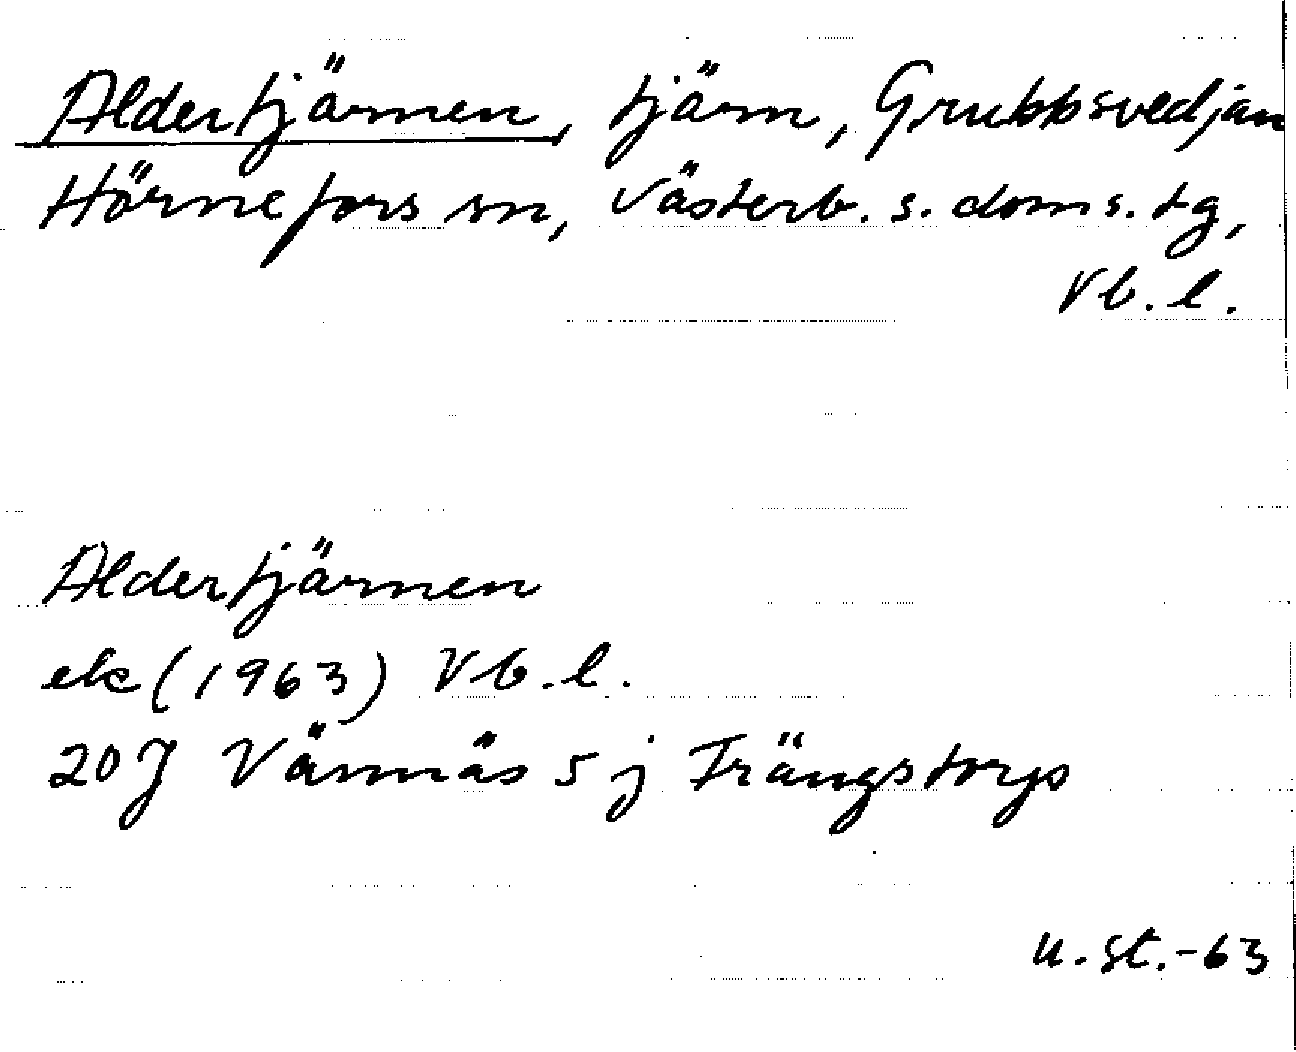 Aldertjärnen, tjärn, Grubbsvedjan
Hörnefors sn, Västerb. s. doms. tg,
Vb. l.
Aldertjärnen
ek (1963) Vb. l.
20 J Vännäs 5 j Trängstorp
u. st. -63